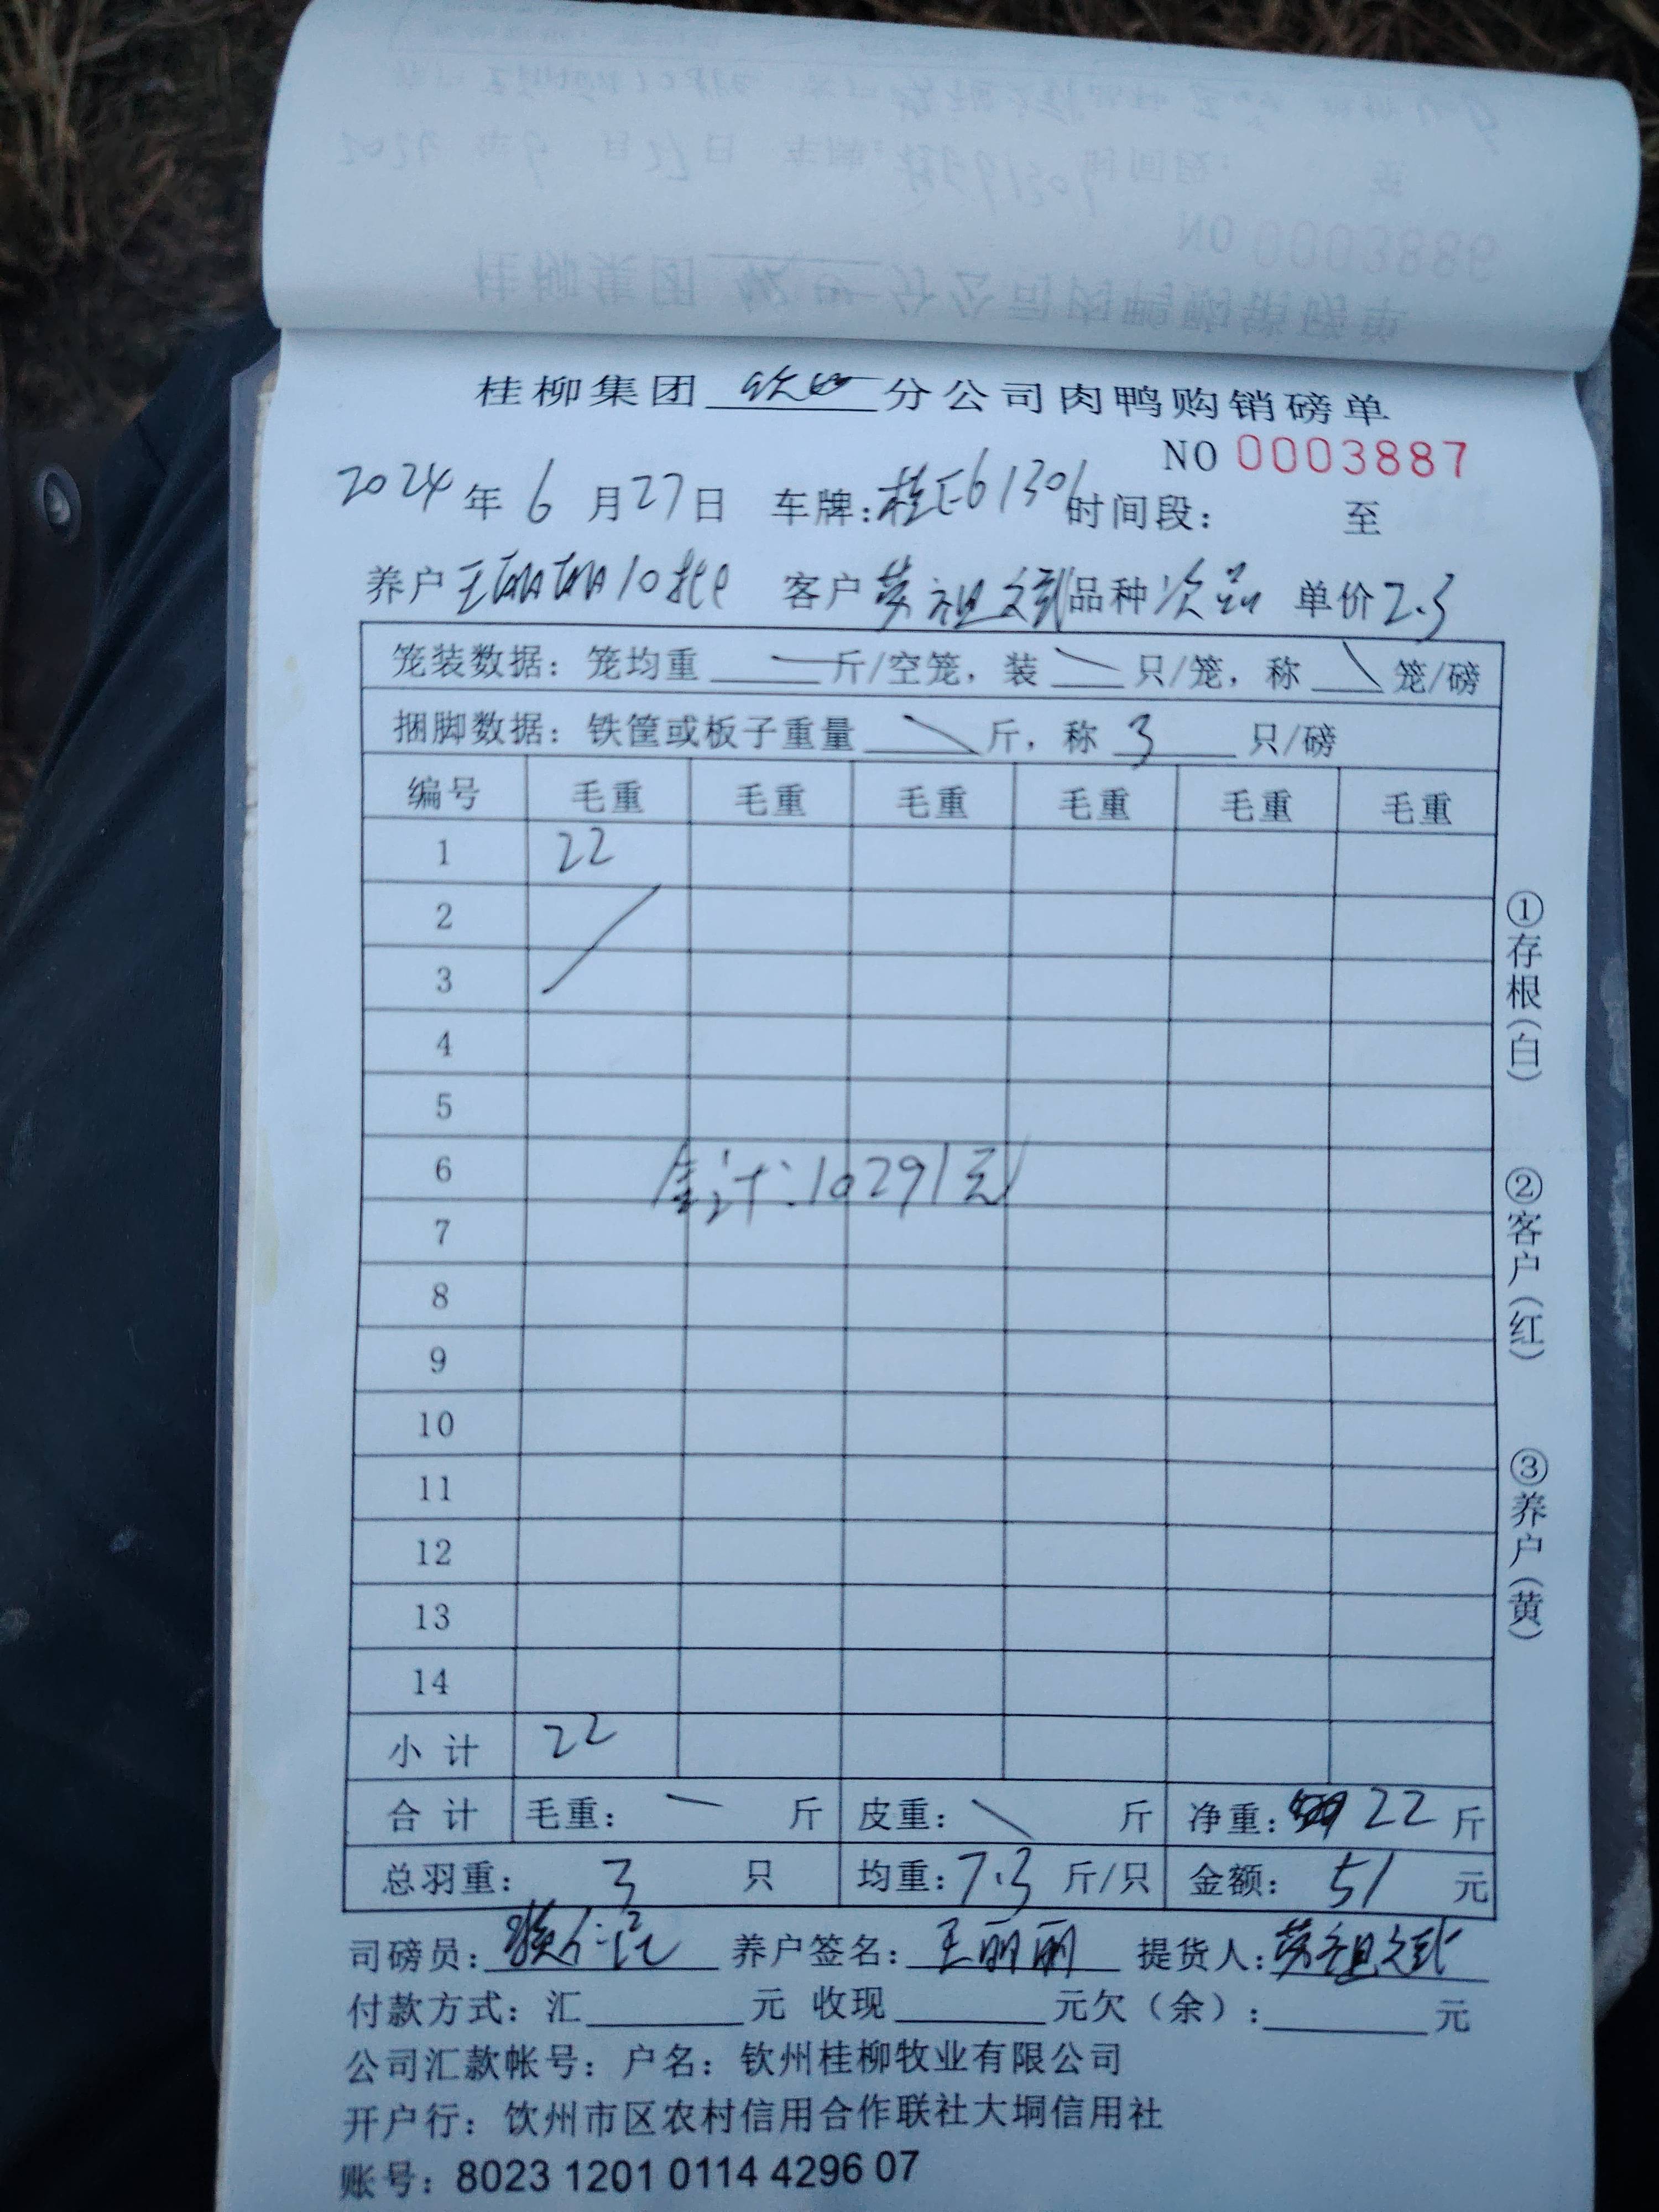 桂柳集团 钦四 分公司肉鸭购销磅单
NO 0003887
2024 年 6 月 27 日 车牌: 桂E61301 时间段: 至
养户 王丽丽10批 客户 劳祖文武 品种 次品 单价 2.3
笼装数据: 笼均重 斤/空笼, 装 只/笼, 称 笼/磅
捆脚数据: 铁筐或板子重量 斤, 称 3 只/磅
编号 毛重 毛重 毛重 毛重 毛重 毛重
1 22
2
3
4
5
6 合计: 10291元
7
8
9
10
11
12
13
14
小计 22
合计 毛重: 斤 皮重: 斤 净重: 22 斤
总羽重: 3 只 均重: 7.3 斤/只 金额: 51 元
司磅员: 养户签名: 王丽丽 提货人: 劳祖文武
付款方式: 汇 元 收现 元欠(余): 元
公司汇款帐号: 户名: 钦州桂柳牧业有限公司
开户行: 钦州市区农村信用合作联社大垌信用社
账号: 8023 1201 0114 4296 07
①存根(白)
②客户(红)
③养户(黄)